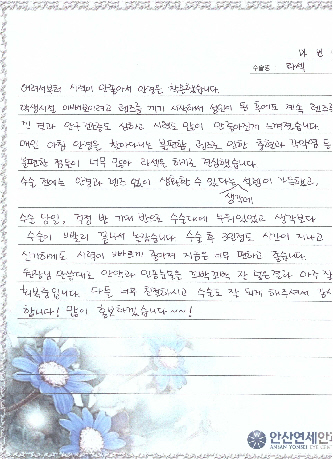 나 연
수술명 라섹
어려서부터 시력이 안좋아서 안경을 착용했습니다.
학생시절 예뻐보이려고 렌즈를 끼기 시작해서 성인이 된 후에도 계속 렌즈
낀 결과 안구건조도 심하고 시력도 많이 안좋아진게 느껴졌습니다.
매일 아침 안경을 찾아다니는 불편함, 렌즈로 인한 충혈과 각막염 등
불편한 점들이 너무 많아 라섹을 하기로 결심했습니다
수술 전에는 안경과 렌즈 없이 생활할 수 있다는 설렘이 가득했고,
생각에
수술 당일, 걱정 반 기대 반으로 수술대에 누워있었고 생각보다
수술이 빨리 끝나서 놀랐습니다. 수술 후 3일정도 시간이 지나고
신기하게도 시력이 빠르게 좋아져 지금은 너무 편하고 좋습니다.
원장님 말씀대로 안약과 인공눈물은 꼬박꼬박 잘 넣은결과 아주 잘
회복중입니다. 다들 너무 친절하시고 수술도 잘 되게 해주셔서 감사
합니다! 많이 홍보하겠습니다~~!
안산연세안과
ANSAN YONSEI EYE